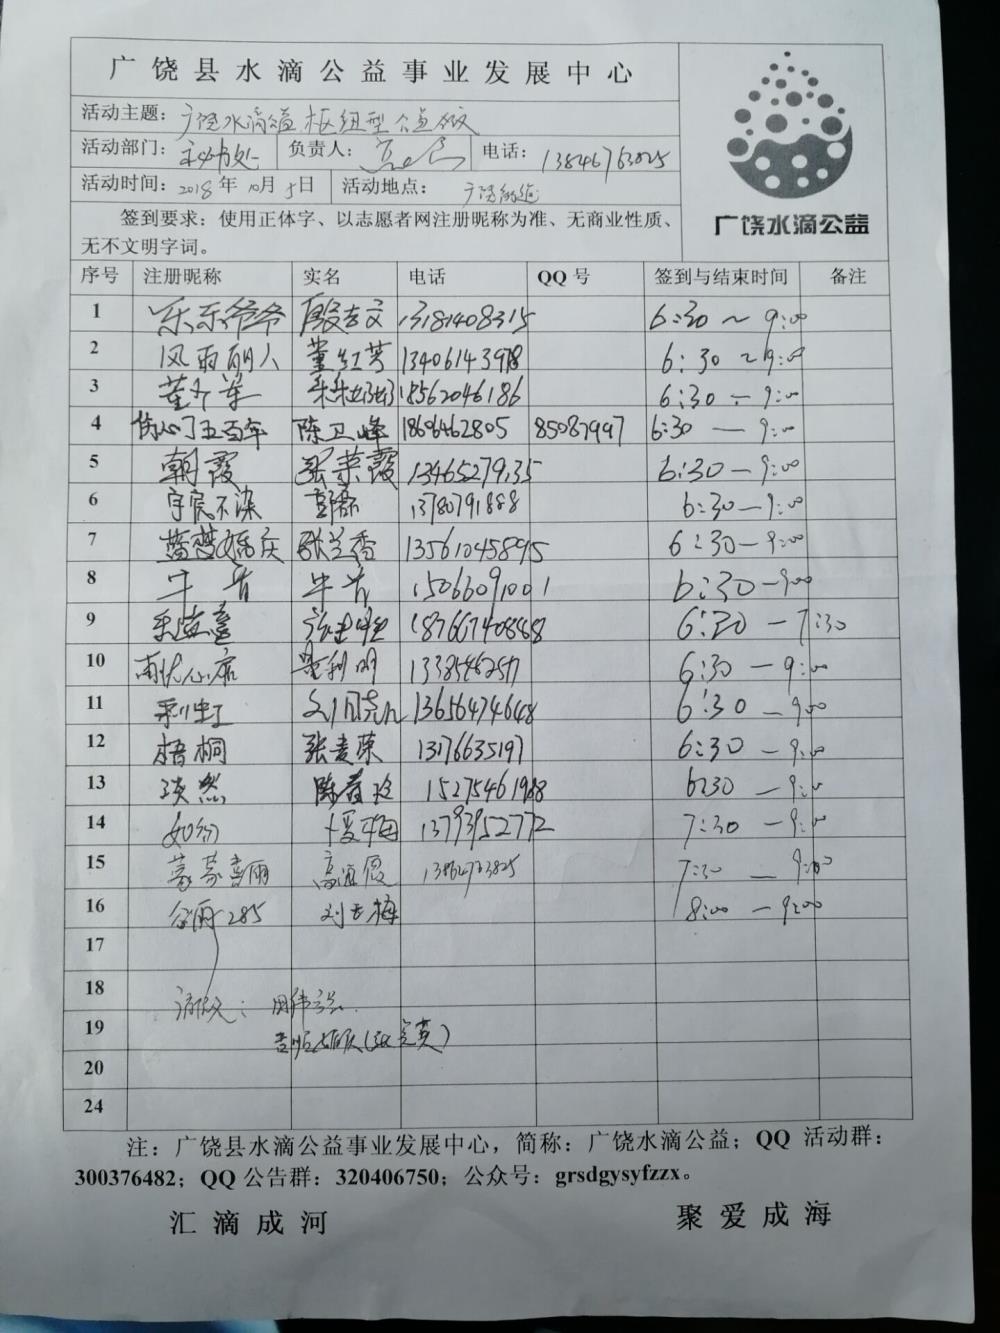 广饶县水滴公益事业发展中心
广饶水滴公益
活动主题：广饶水滴公益枢纽型公益
活动部门：秘书处 负责人： 电话：13846763825
活动时间：2018年10月5日 活动地点：
签到要求：使用正体字、以志愿者网注册昵称为准、无商业性质、
无不文明字词。
序号 注册昵称 实名 电话 QQ号 签到与结束时间 备注
1 乐乐爷爷 13181408315 6:30～9:00
2 风雨丽人 董红芳 13406143978 6:30～9:00
3 18562046186 6:30－9:00
4 伤心了五百年 陈卫峰 18606462805 85087997 6:30—9:00
5 朝霞 张荣霞 6:30－9:00
6 13780791888 6:30—9:00
7 蓝梦婚庆 张兰香 13561045895 6:30－9:00
8 牛青 牛青 15066091001 6:30－9:00
9 18766740888 6:30－7:30
10 6:30－9:00
11 利虹 13656474648 6:30－9:00
12 梧桐 张麦荣 13176635197 6:30－9:00
13 淡然 15275461988 6:30－9:00
14 13793952772 7:30－9:00
15 7:30－9:00
16 谷雨285 8:00－9:00
17
18
19
20
24
注：广饶县水滴公益事业发展中心，简称：广饶水滴公益；QQ 活动群：
300376482；QQ 公告群：320406750；公众号：grsdgysyfzzx。
汇滴成河 聚爱成海